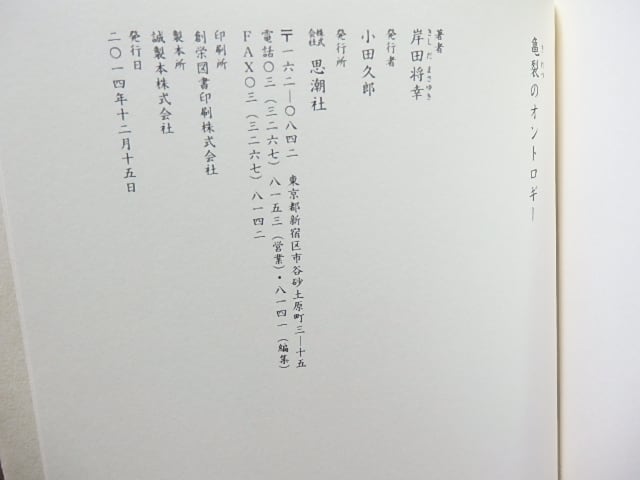 亀裂のオントロギー
きれつ
著者
岸田将幸
きしだまさゆき
発行者
小田久郎
発行所
株式会社 思潮社
〒一六二―〇八四二 東京都新宿区市谷砂土原町三―十五
電話〇三(三二六七)八一五三(営業)・八一四一(編集)
FAX〇三(三二六七)八一四二
印刷所
創栄図書印刷株式会社
製本所
誠製本株式会社
発行日
二〇一四年十二月十五日